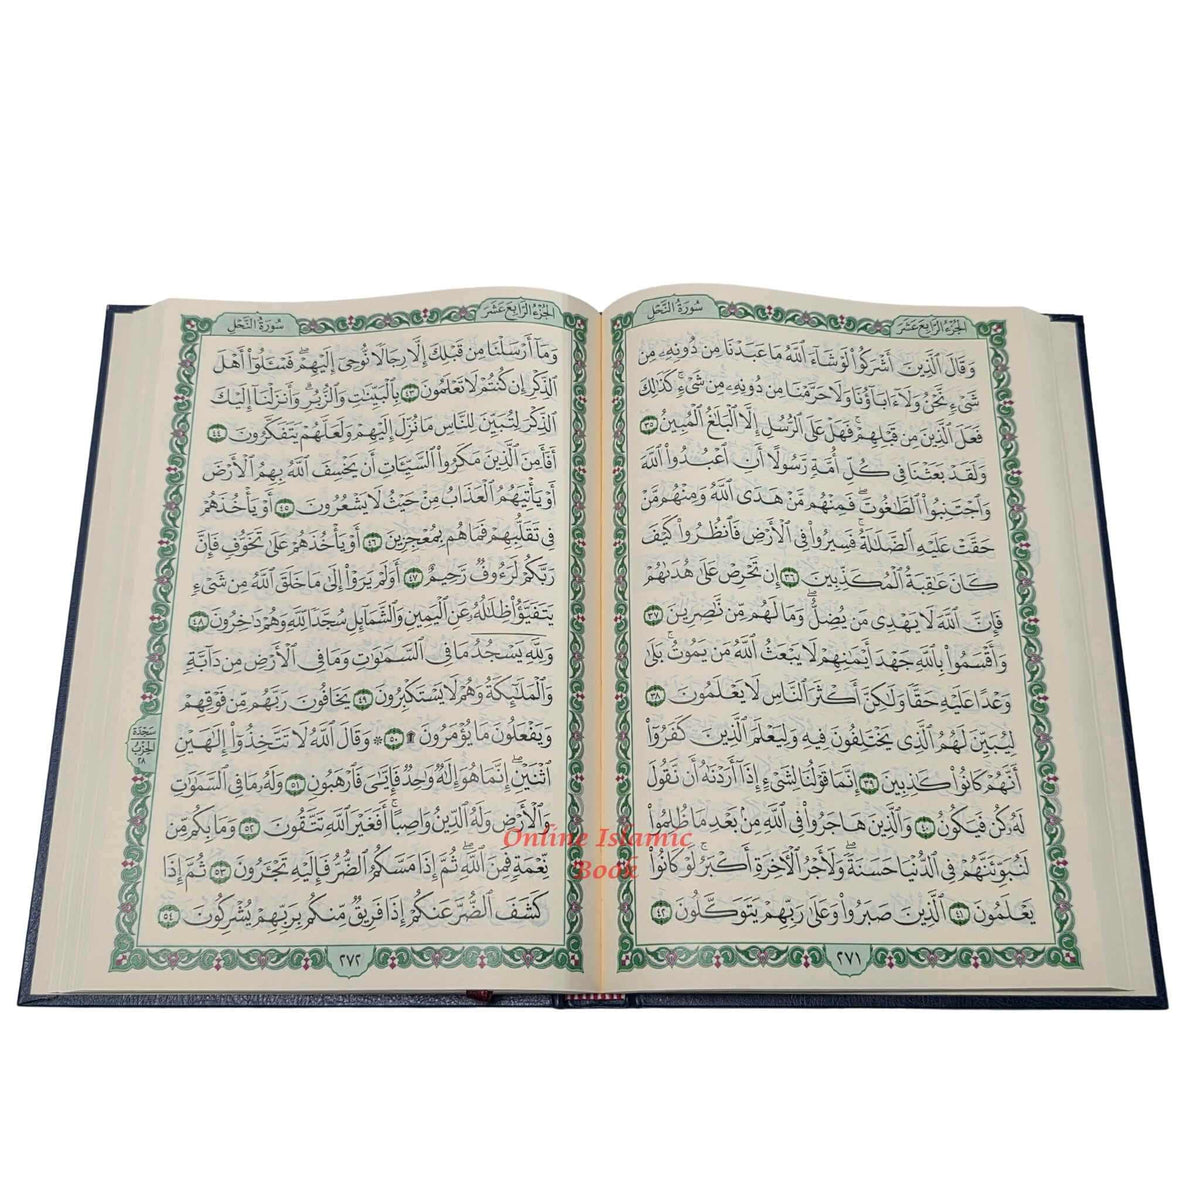 سُورَةُ النَّحْلِ
الجُزْءُ الرَّابِعَ عَشَرَ
وَقَالَ ٱلَّذِينَ أَشْرَكُوا۟ لَوْ شَآءَ ٱللَّهُ مَا عَبَدْنَا مِن دُونِهِۦ مِن
شَىْءٍ نَّحْنُ وَلَآ ءَابَآؤُنَا وَلَا حَرَّمْنَا مِن دُونِهِۦ مِن شَىْءٍ ۚ كَذَٰلِكَ
فَعَلَ ٱلَّذِينَ مِن قَبْلِهِمْ ۚ فَهَلْ عَلَى ٱلرُّسُلِ إِلَّا ٱلْبَلَٰغُ ٱلْمُبِينُ ٣٥
وَلَقَدْ بَعَثْنَا فِى كُلِّ أُمَّةٍ رَّسُولًا أَنِ ٱعْبُدُوا۟ ٱللَّهَ
وَٱجْتَنِبُوا۟ ٱلطَّٰغُوتَ ۖ فَمِنْهُم مَّنْ هَدَى ٱللَّهُ وَمِنْهُم مَّنْ
حَقَّتْ عَلَيْهِ ٱلضَّلَٰلَةُ ۚ فَسِيرُوا۟ فِى ٱلْأَرْضِ فَٱنظُرُوا۟ كَيْفَ
كَانَ عَٰقِبَةُ ٱلْمُكَذِّبِينَ ٣٦ إِن تَحْرِصْ عَلَىٰ هُدَىٰهُمْ
فَإِنَّ ٱللَّهَ لَا يَهْدِى مَن يُضِلُّ ۖ وَمَا لَهُم مِّن نَّٰصِرِينَ ٣٧
وَأَقْسَمُوا۟ بِٱللَّهِ جَهْدَ أَيْمَٰنِهِمْ لَا يَبْعَثُ ٱللَّهُ مَن يَمُوتُ ۚ بَلَىٰ
وَعْدًا عَلَيْهِ حَقًّا وَلَٰكِنَّ أَكْثَرَ ٱلنَّاسِ لَا يَعْلَمُونَ ٣٨
لِيُبَيِّنَ لَهُمُ ٱلَّذِى يَخْتَلِفُونَ فِيهِ وَلِيَعْلَمَ ٱلَّذِينَ كَفَرُوٓا۟
أَنَّهُمْ كَانُوا۟ كَٰذِبِينَ ٣٩ إِنَّمَا قَوْلُنَا لِشَىْءٍ إِذَآ أَرَدْنَٰهُ أَن نَّقُولَ
لَهُۥ كُن فَيَكُونُ ٤٠ وَٱلَّذِينَ هَاجَرُوا۟ فِى ٱللَّهِ مِنۢ بَعْدِ مَا ظُلِمُوا۟
لَنُبَوِّئَنَّهُمْ فِى ٱلدُّنْيَا حَسَنَةً ۖ وَلَأَجْرُ ٱلْـَٔاخِرَةِ أَكْبَرُ ۚ لَوْ كَانُوا۟
يَعْلَمُونَ ٤١ ٱلَّذِينَ صَبَرُوا۟ وَعَلَىٰ رَبِّهِمْ يَتَوَكَّلُونَ ٤٢
٢٧١
الجُزْءُ الرَّابِعَ عَشَرَ
سُورَةُ النَّحْلِ
وَمَآ أَرْسَلْنَا مِن قَبْلِكَ إِلَّا رِجَالًا نُّوحِىٓ إِلَيْهِمْ ۖ فَسْـَٔلُوٓا۟ أَهْلَ
ٱلذِّكْرِ إِن كُنتُمْ لَا تَعْلَمُونَ ٤٣ بِٱلْبَيِّنَٰتِ وَٱلزُّبُرِ ۗ وَأَنزَلْنَآ إِلَيْكَ
ٱلذِّكْرَ لِتُبَيِّنَ لِلنَّاسِ مَا نُزِّلَ إِلَيْهِمْ وَلَعَلَّهُمْ يَتَفَكَّرُونَ ٤٤
أَفَأَمِنَ ٱلَّذِينَ مَكَرُوا۟ ٱلسَّيِّـَٔاتِ أَن يَخْسِفَ ٱللَّهُ بِهِمُ ٱلْأَرْضَ
أَوْ يَأْتِيَهُمُ ٱلْعَذَابُ مِنْ حَيْثُ لَا يَشْعُرُونَ ٤٥ أَوْ يَأْخُذَهُمْ
فِى تَقَلُّبِهِمْ فَمَا هُم بِمُعْجِزِينَ ٤٦ أَوْ يَأْخُذَهُمْ عَلَىٰ تَخَوُّفٍ فَإِنَّ
رَبَّكُمْ لَرَءُوفٌ رَّحِيمٌ ٤٧ أَوَلَمْ يَرَوْا۟ إِلَىٰ مَا خَلَقَ ٱللَّهُ مِن شَىْءٍ
يَتَفَيَّؤُا۟ ظِلَٰلُهُۥ عَنِ ٱلْيَمِينِ وَٱلشَّمَآئِلِ سُجَّدًا لِّلَّهِ وَهُمْ دَٰخِرُونَ ٤٨
وَلِلَّهِ يَسْجُدُ مَا فِى ٱلسَّمَٰوَٰتِ وَمَا فِى ٱلْأَرْضِ مِن دَآبَّةٍ
وَٱلْمَلَٰٓئِكَةُ وَهُمْ لَا يَسْتَكْبِرُونَ ٤٩ يَخَافُونَ رَبَّهُم مِّن فَوْقِهِمْ
وَيَفْعَلُونَ مَا يُؤْمَرُونَ ۩ ٥٠ ۞ وَقَالَ ٱللَّهُ لَا تَتَّخِذُوٓا۟ إِلَٰهَيْنِ
ٱثْنَيْنِ ۖ إِنَّمَا هُوَ إِلَٰهٌ وَٰحِدٌ ۖ فَإِيَّٰىَ فَٱرْهَبُونِ ٥١ وَلَهُۥ مَا فِى ٱلسَّمَٰوَٰتِ
وَٱلْأَرْضِ وَلَهُ ٱلدِّينُ وَاصِبًا ۚ أَفَغَيْرَ ٱللَّهِ تَتَّقُونَ ٥٢ وَمَا بِكُم مِّن
نِّعْمَةٍ فَمِنَ ٱللَّهِ ۖ ثُمَّ إِذَا مَسَّكُمُ ٱلضُّرُّ فَإِلَيْهِ تَجْـَٔرُونَ ٥٣ ثُمَّ إِذَا
كَشَفَ ٱلضُّرَّ عَنكُمْ إِذَا فَرِيقٌ مِّنكُم بِرَبِّهِمْ يُشْرِكُونَ ٥٤
سَجْدَة
الحِزْبُ
٢٨
٢٧٢
Online Islamic
Book